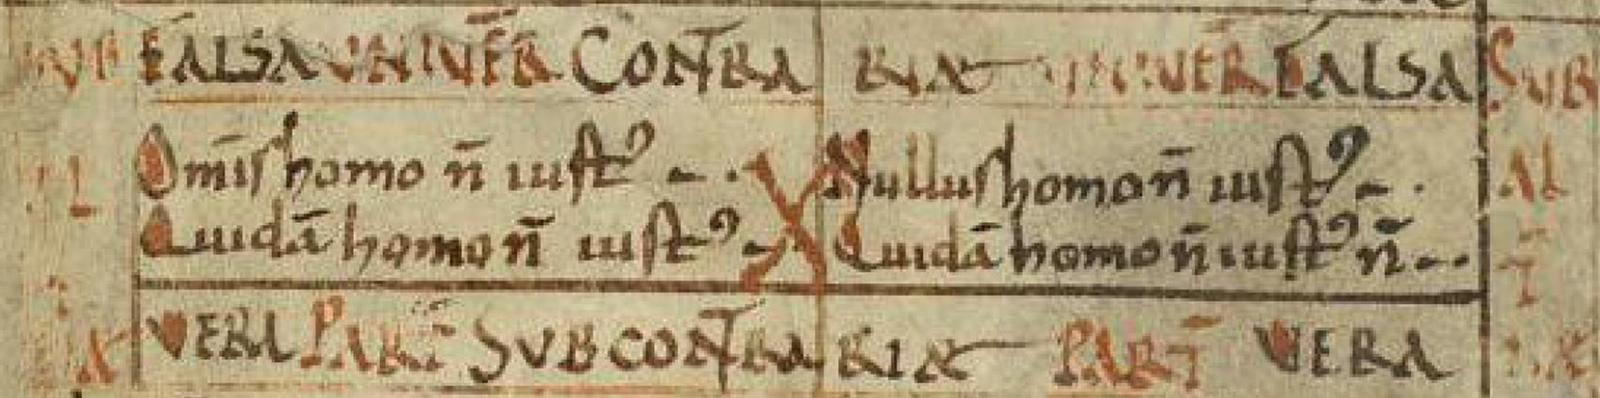 FALSA UNIUER̄ CONTRA RIA UNIUER̄ FALSA SUB
Om̄is homo n̄ iustꝰ Nullus homo n̄ iustꝰ AL
Quidā homo n̄ iustꝰ Quidā homo n̄ iustꝰ n̄
VERA PART̄ SUBCONTRA RIA PART̄ VERA